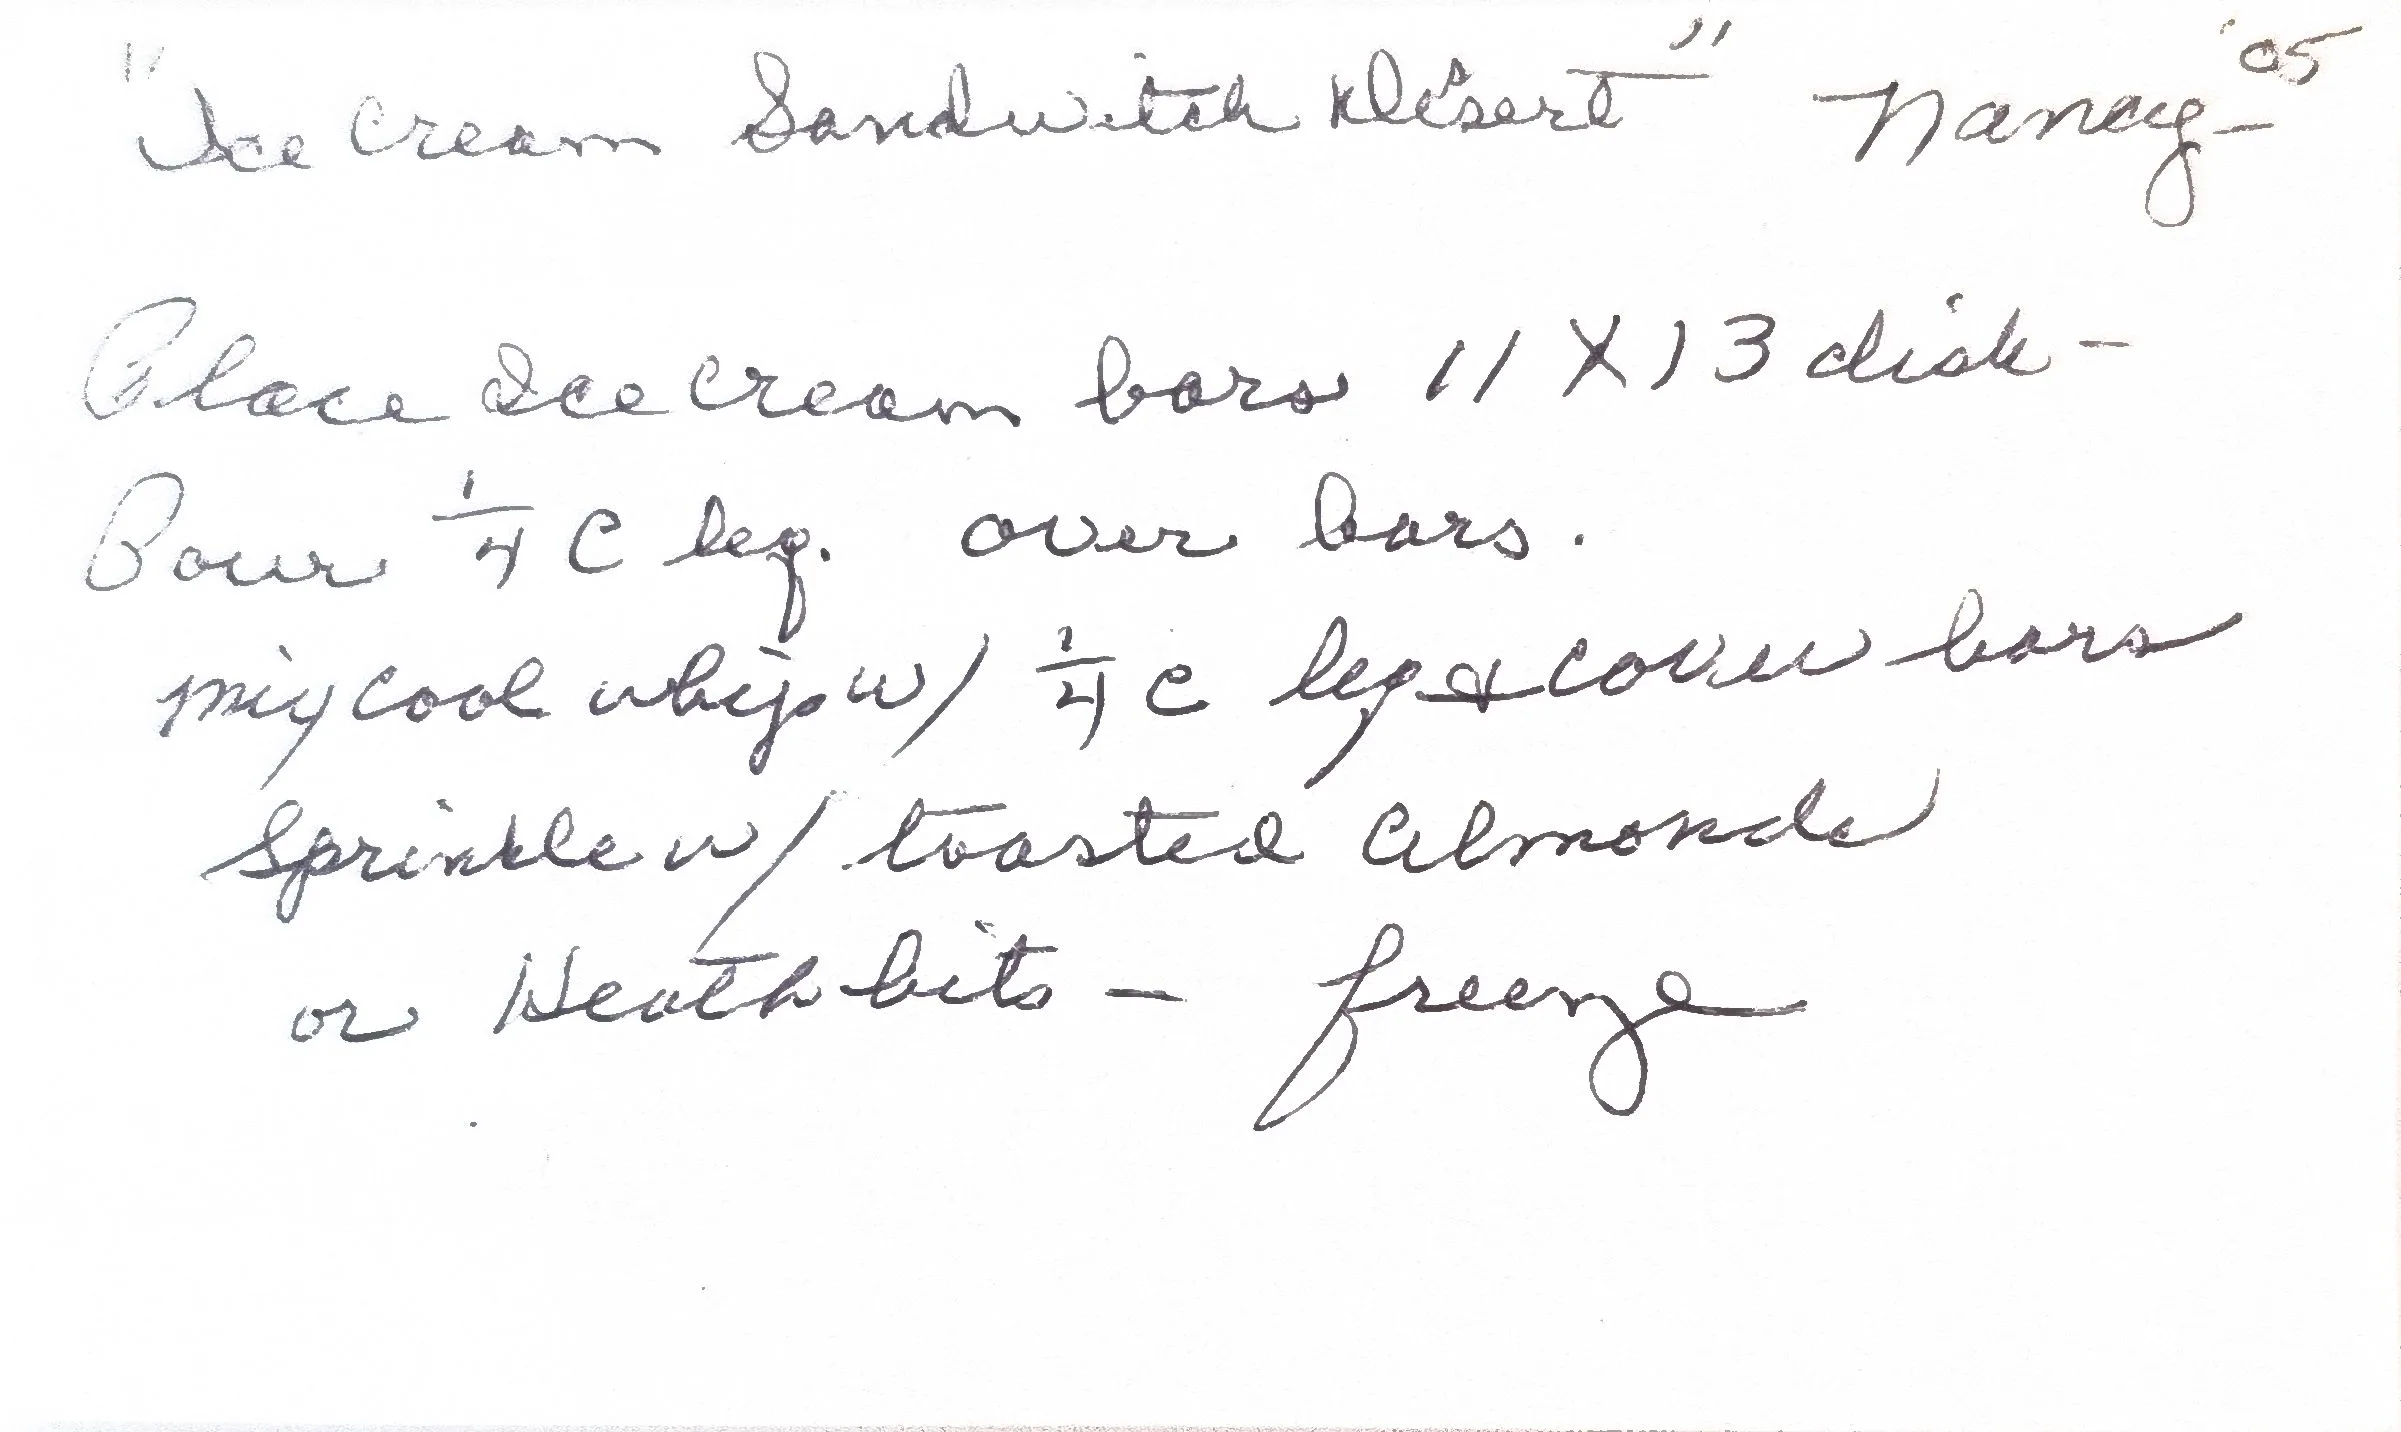 "Ice Cream Sandwitch Desert" Nancy - '05
Place Ice Cream bars 11 X 13 dish -
Pour 1/4 C leq. over bars.
Mix cool whip w/ 1/4 C leq & cover bars
Sprinkle w/ toasted Almonds
or Heath bits - freeze